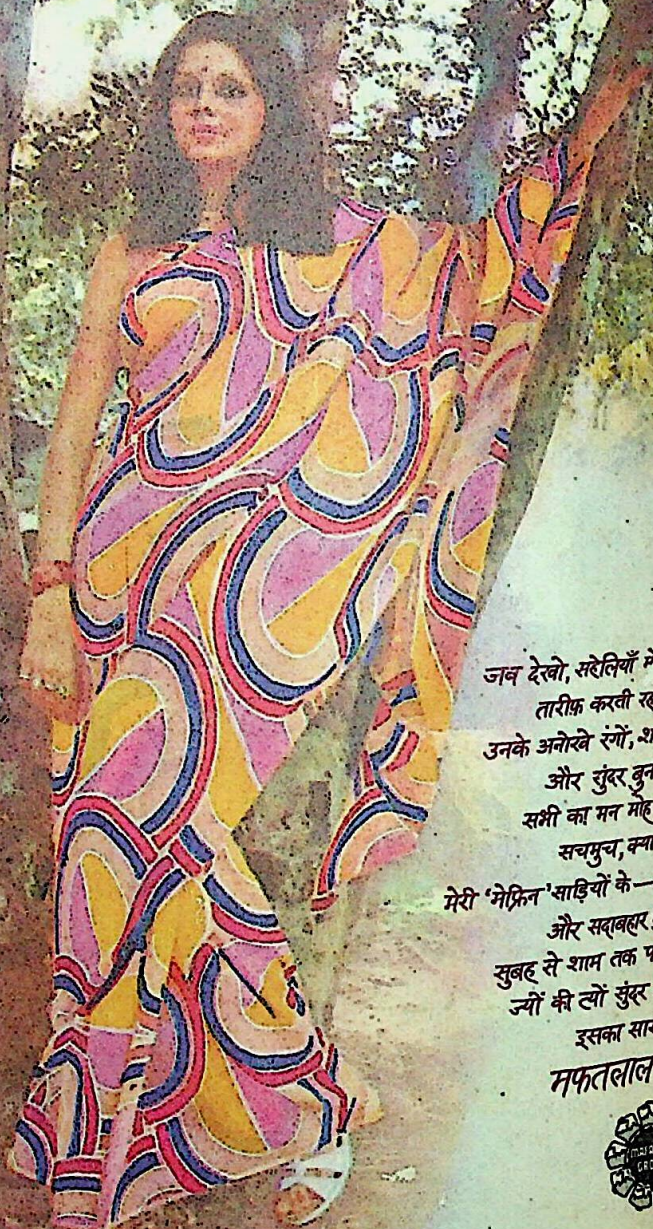 जब देखो, सहेलियाँ
तारीफ़ करती
उनके अनोखे रंगों,
और सुंदर
सभी का मन मोह
सचमुच, क्या
मेरी 'मेफ्रिन' साड़ियों के—
और सदाबहार
सुबह से शाम तक
ज्यों की त्यों सुंदर
इसका
मफतलाल